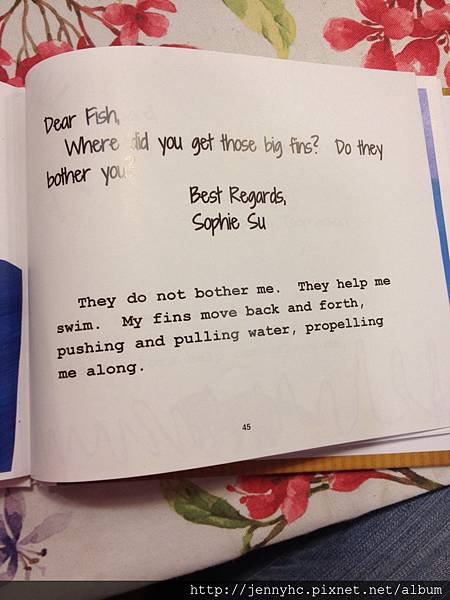 Dear Fish,
Where did you get those big fins? Do they
bother you?
Best Regards,
Sophie Su
They do not bother me. They help me
swim. My fins move back and forth,
pushing and pulling water, propelling
me along.
45
http://jennyhc.pixnet.net/album